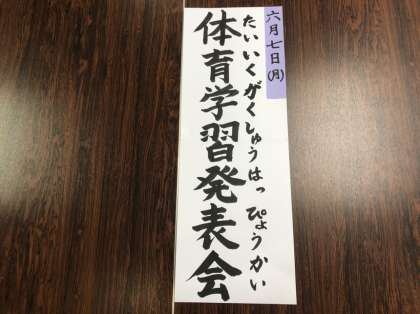 六月七日(月)
たいいくがくしゅうはっぴょうかい
体育学習発表会